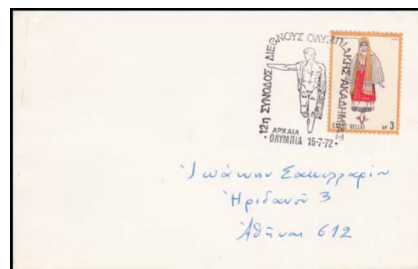 ·12η ΣΥΝΟΔΟΣ ΔΙΕΘΝΟΥΣ ΟΛΥΜΠΙΑΚΗΣ ΑΚΑΔΗΜΙΑΣ·
ΑΡΧΑΙΑ
ΟΛΥΜΠΙΑ 16-7-72
HELLAS ΔΡ 3
Ἰωάννην
Ἠριδανοῦ 3
Ἀθῆναι 612